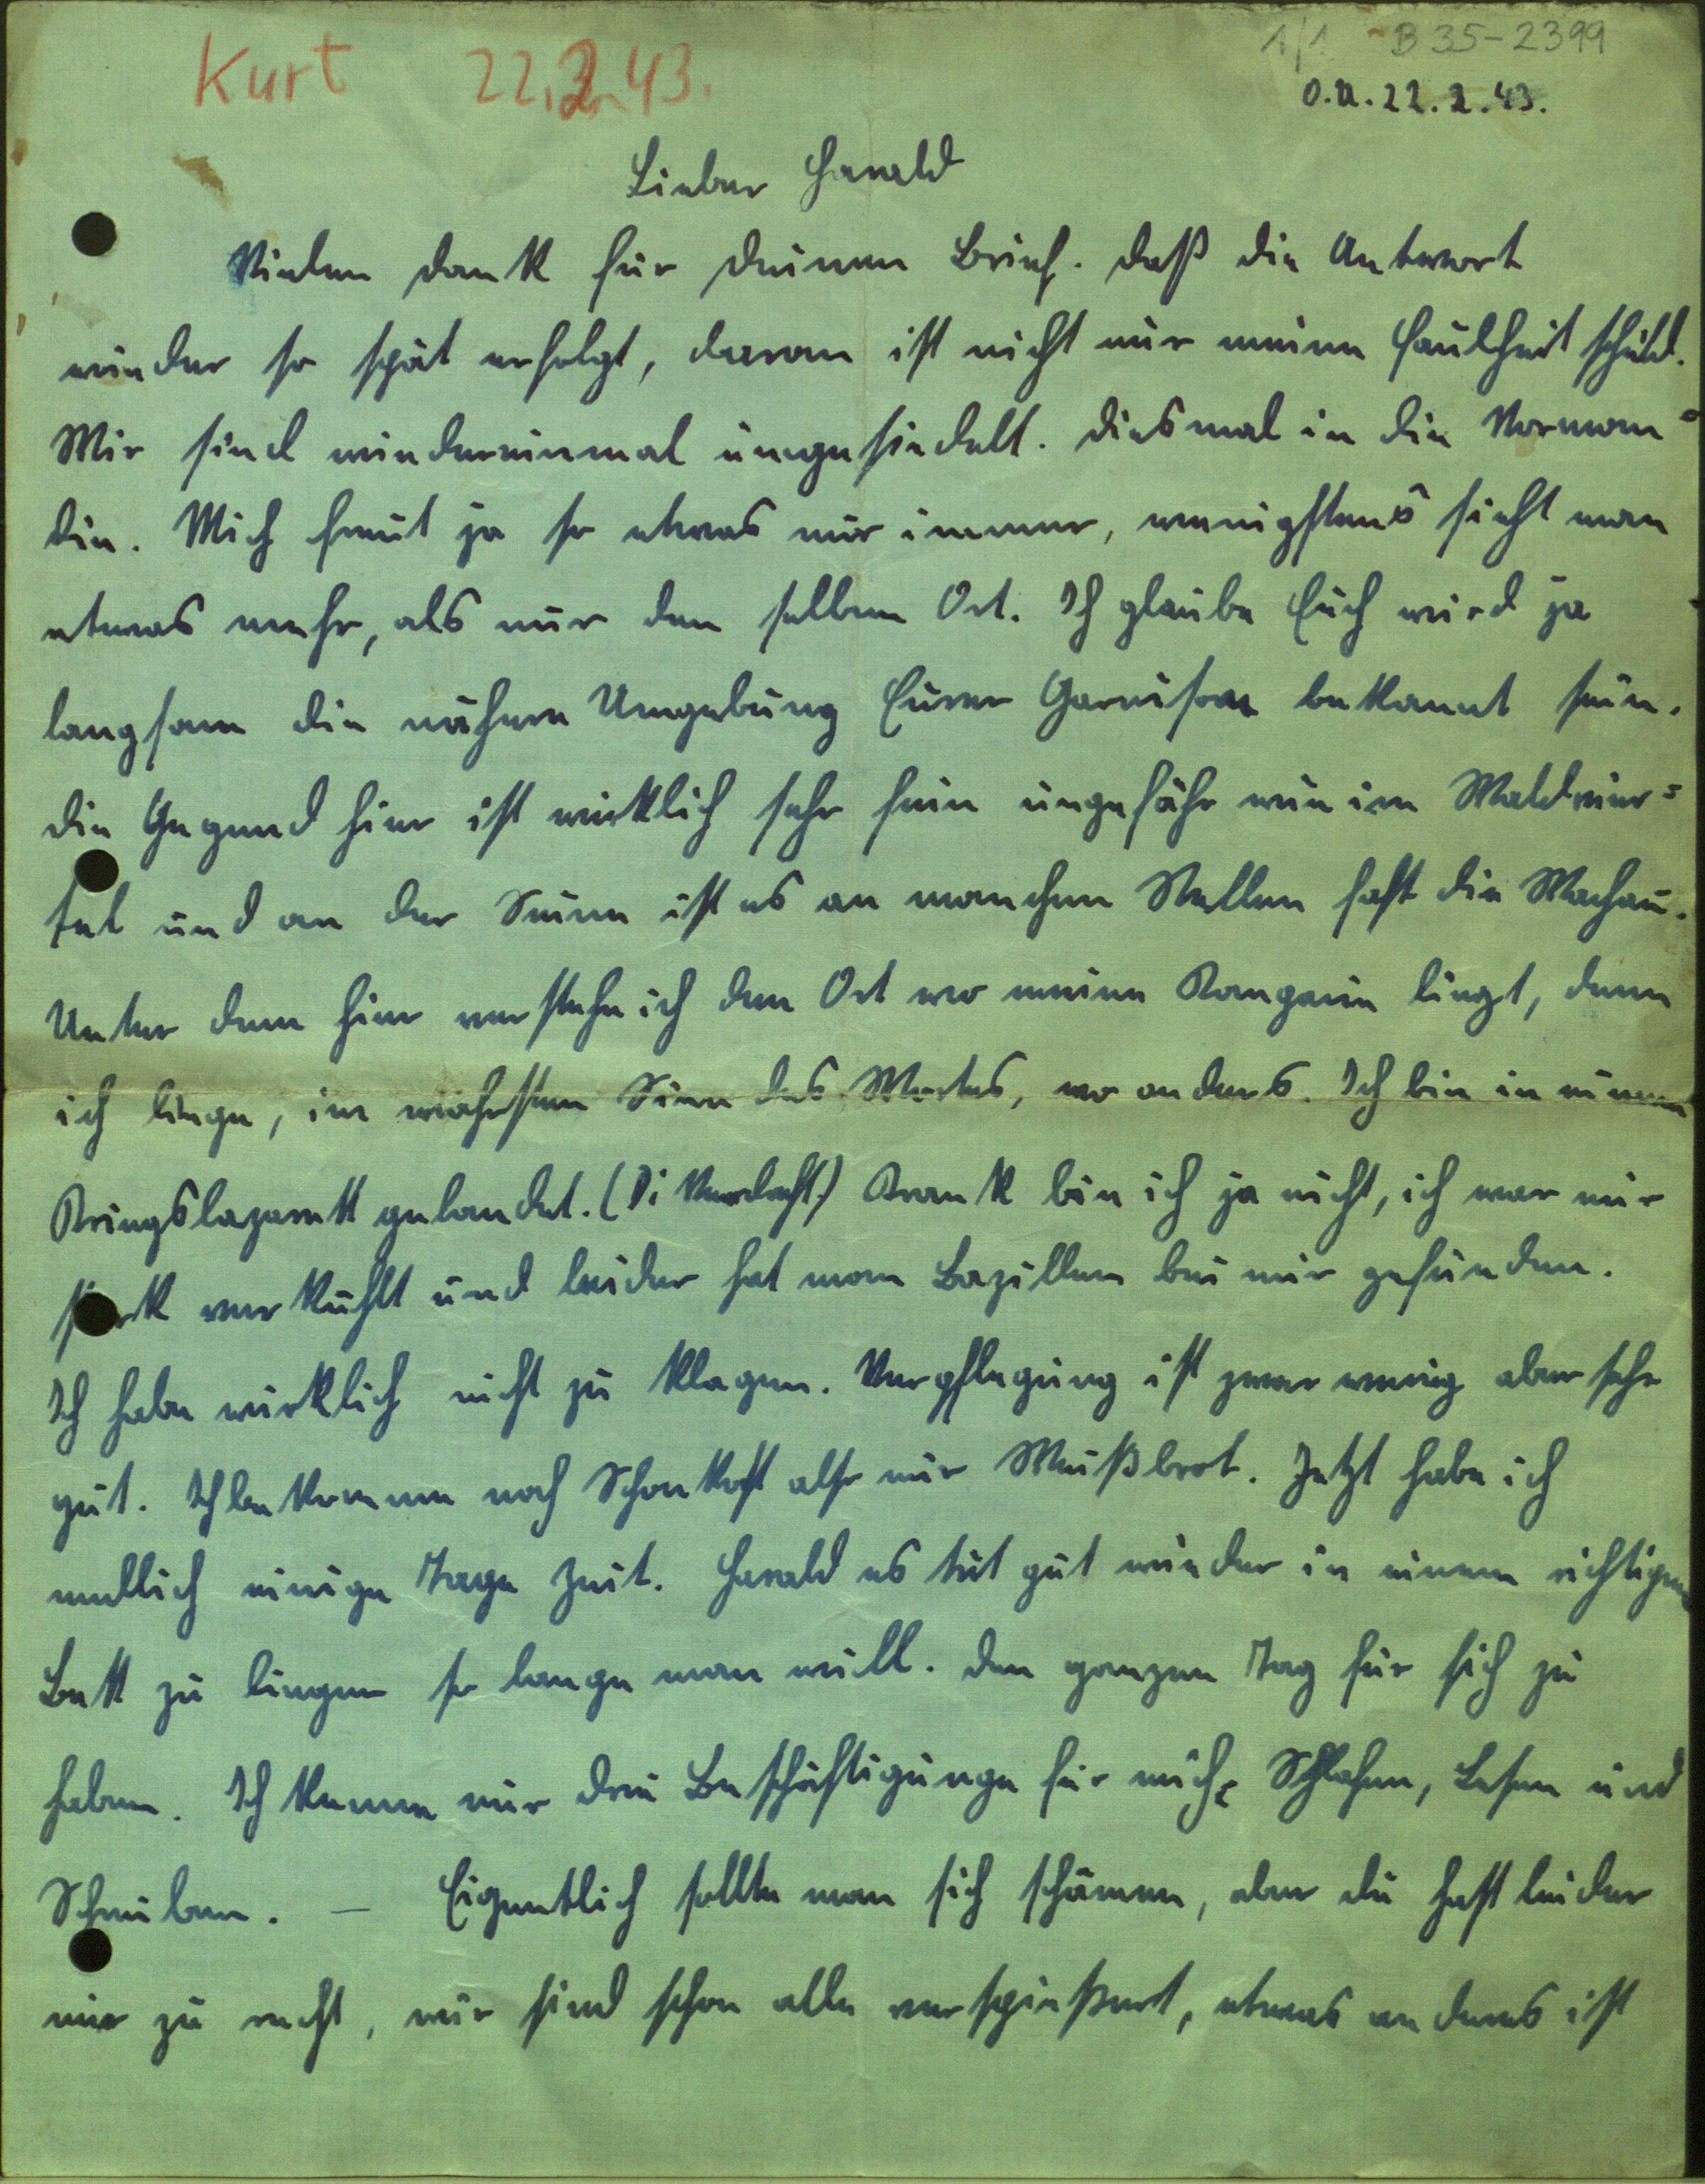 1/1 B 35-2399
Kurt 22.2.43.
O.U. 22.2.43.
Lieber Harald
Vielen Dank für Deinen Brief. Daß die Antwort
wieder so spät erfolgt, daran ist nicht nur meine Faulheit schuld.
Wir sind wiedereinmal umgesiedelt. Diesmal in die Norman=
die. Mich freut ja so etwas nur immer, wenigstens sieht man
etwas mehr, als nur den selben Ort. Ich glaube Euch wird ja
langsam die nähere Umgebung Eurer Garnison bekannt sein.
Die Gegend hier ist wirklich sehr fein ungefähr wie im Waldvier=
tel und an der Seine ist es an manchen Stellen fast die Wachau.
Unter dem hier verstehe ich den Ort wo meine Kompanie liegt, denn
ich liege, im wahrsten Sinn des Wortes, wo anders. Ich bin in einem
Kriegslazarett gelandet. (Di Verdacht.) Krank bin ich ja nicht, ich war nur
stark verkühlt und leider hat man Bazillen bei mir gefunden.
Ich habe wirklich nicht zu klagen. Verpflegung ist zwar wenig aber sehr
gut. Ich bekomme noch Schonkost also nur Weißbrot. Jetzt habe ich
endlich einige Tage Zeit. Harald es tut gut wieder in einem richtigen
Bett zu liegen so lange man will. Den ganzen Tag für sich zu
haben. Ich kenne nur drei Beschäftigunge für mich: Schlafen, Lesen und
Schreiben. — Eigentlich sollte man sich schämen, aber Du hast leider
nur zu recht, wir sind schon alle verspießert, etwas anderes ist